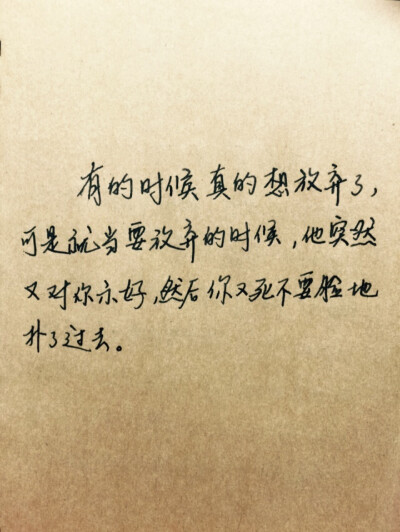 有的时候真的想放弃了,
可是就当要放弃的时候,他突然
又对你示好,然后你又死不要脸地
扑了过去。